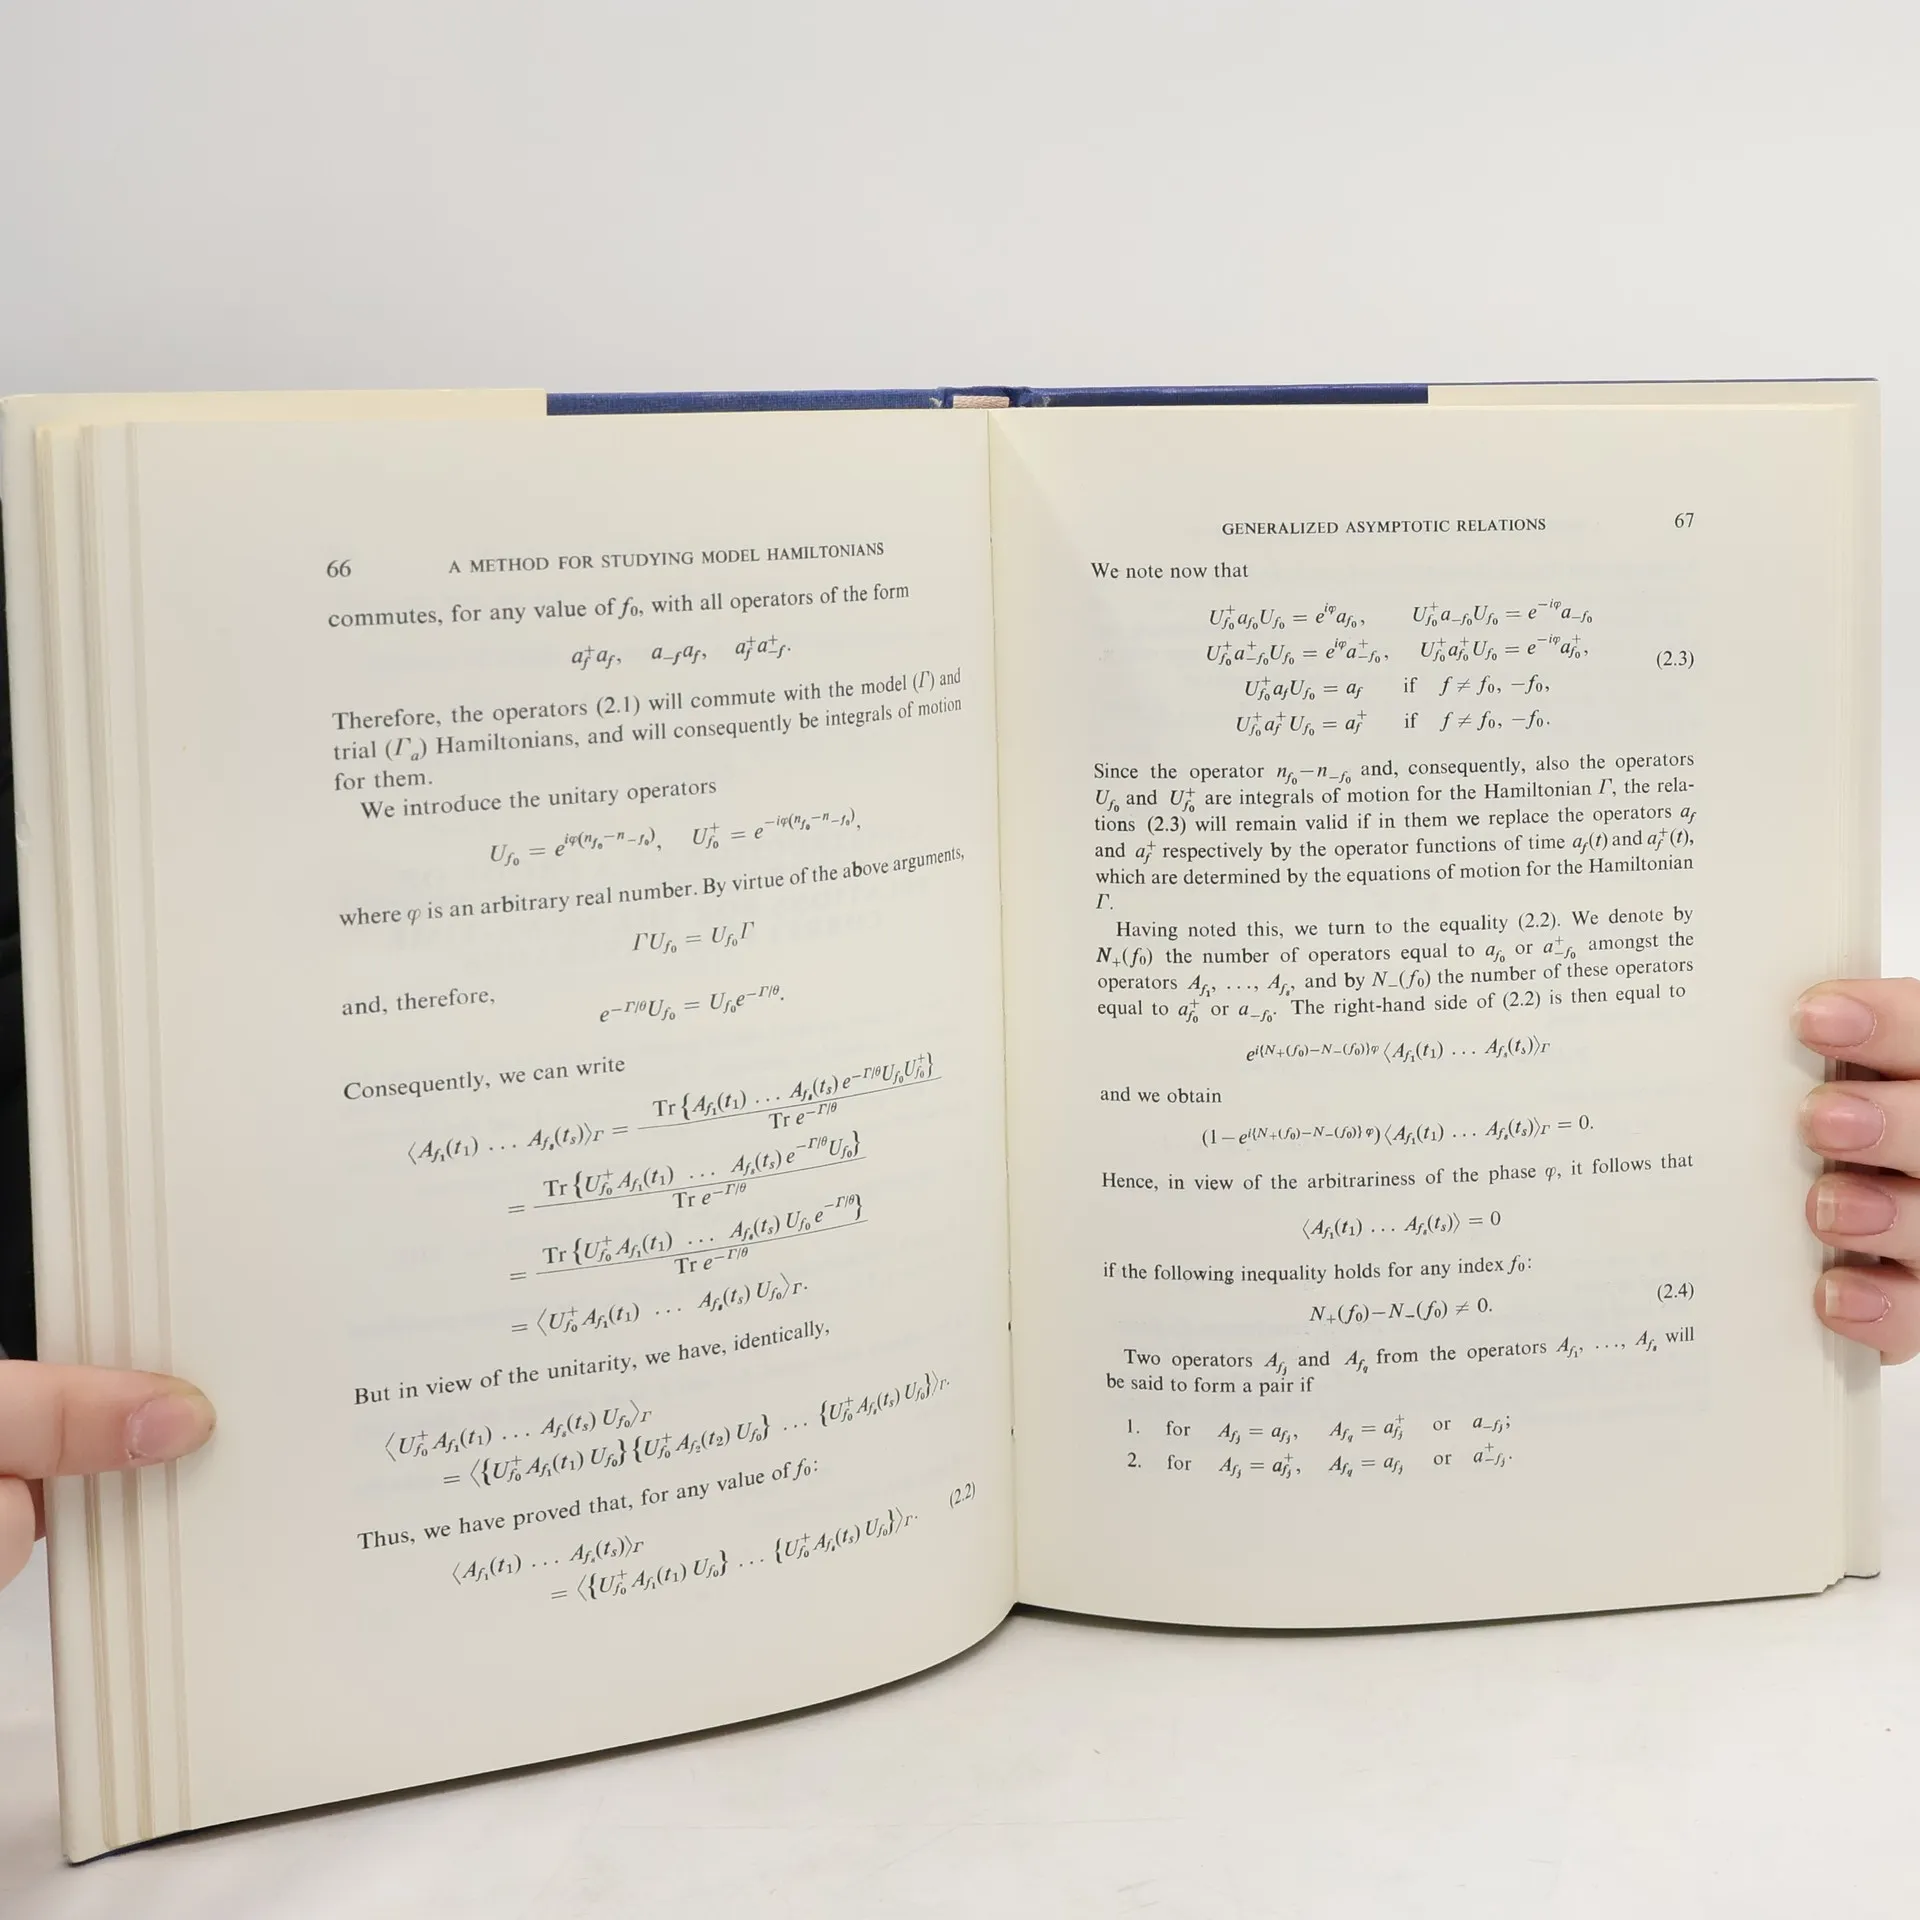 66 A METHOD FOR STUDYING MODEL HAMILTONIANS
commutes, for any value of f₀, with all operators of the form
a_f^+ a_f, a_{−f}a_f, a_f^+ a_{−f}^+.
Therefore, the operators (2.1) will commute with the model (Γ) and
trial (Γ_a) Hamiltonians, and will consequently be integrals of motion
for them.
We introduce the unitary operators
U_{f₀} = e^{iφ(n_{f₀}−n_{−f₀})}, U_{f₀}^+ = e^{−iφ(n_{f₀}−n_{−f₀})},
where φ is an arbitrary real number. By virtue of the above arguments,
ΓU_{f₀} = U_{f₀}Γ
and, therefore,
e^{−Γ/θ}U_{f₀} = U_{f₀}e^{−Γ/θ}.
Consequently, we can write
⟨A_{f₁}(t₁) ... A_{f_s}(t_s)⟩_Γ = Tr {A_{f₁}(t₁) ... A_{f_s}(t_s) e^{−Γ/θ}U_{f₀}U_{f₀}^+} / Tr e^{−Γ/θ}
= Tr {U_{f₀}^+ A_{f₁}(t₁) ... A_{f_s}(t_s) e^{−Γ/θ}U_{f₀}} / Tr e^{−Γ/θ}
= Tr {U_{f₀}^+ A_{f₁}(t₁) ... A_{f_s}(t_s) U_{f₀} e^{−Γ/θ}} / Tr e^{−Γ/θ}
= ⟨U_{f₀}^+ A_{f₁}(t₁) ... A_{f_s}(t_s) U_{f₀}⟩_Γ.
But in view of the unitarity, we have, identically,
⟨U_{f₀}^+ A_{f₁}(t₁) ... A_{f_s}(t_s) U_{f₀}⟩_Γ
= ⟨{U_{f₀}^+ A_{f₁}(t₁) U_{f₀}} {U_{f₀}^+ A_{f₂}(t₂) U_{f₀}} ... {U_{f₀}^+ A_{f_s}(t_s) U_{f₀}}⟩_Γ.
Thus, we have proved that, for any value of f₀:
⟨A_{f₁}(t₁) ... A_{f_s}(t_s)⟩_Γ (2.2)
= ⟨{U_{f₀}^+ A_{f₁}(t₁) U_{f₀}} ... {U_{f₀}^+ A_{f_s}(t_s) U_{f₀}}⟩_Γ.
GENERALIZED ASYMPTOTIC RELATIONS 67
We note now that
U_{f₀}^+ a_{f₀}U_{f₀} = e^{iφ}a_{f₀}, U_{f₀}^+ a_{−f₀}U_{f₀} = e^{−iφ}a_{−f₀}
U_{f₀}^+ a_{−f₀}^+ U_{f₀} = e^{iφ}a_{−f₀}^+, U_{f₀}^+ a_{f₀}^+ U_{f₀} = e^{−iφ}a_{f₀}^+, (2.3)
U_{f₀}^+ a_f U_{f₀} = a_f if f ≠ f₀, −f₀,
U_{f₀}^+ a_f^+ U_{f₀} = a_f^+ if f ≠ f₀, −f₀.
Since the operator n_{f₀}−n_{−f₀} and, consequently, also the operators
U_{f₀} and U_{f₀}^+ are integrals of motion for the Hamiltonian Γ, the rela-
tions (2.3) will remain valid if in them we replace the operators a_f
and a_f^+ respectively by the operator functions of time a_f(t) and a_f^+(t),
which are determined by the equations of motion for the Hamiltonian
Γ.
Having noted this, we turn to the equality (2.2). We denote by
N₊(f₀) the number of operators equal to a_{f₀} or a_{−f₀}^+ amongst the
operators A_{f₁}, ..., A_{f_s}, and by N₋(f₀) the number of these operators
equal to a_{f₀}^+ or a_{−f₀}. The right-hand side of (2.2) is then equal to
e^{i{N₊(f₀)−N₋(f₀)}φ} ⟨A_{f₁}(t₁) ... A_{f_s}(t_s)⟩_Γ
and we obtain
(1−e^{i{N₊(f₀)−N₋(f₀)}φ}) ⟨A_{f₁}(t₁) ... A_{f_s}(t_s)⟩_Γ = 0.
Hence, in view of the arbitrariness of the phase φ, it follows that
⟨A_{f₁}(t₁) ... A_{f_s}(t_s)⟩ = 0
if the following inequality holds for any index f₀:
N₊(f₀)−N₋(f₀) ≠ 0. (2.4)
Two operators A_{f_j} and A_{f_q} from the operators A_{f₁}, ..., A_{f_s} will
be said to form a pair if
1. for A_{f_j} = a_{f_j}, A_{f_q} = a_{f_j}^+ or a_{−f_j};
2. for A_{f_j} = a_{f_j}^+, A_{f_q} = a_{f_j} or a_{−f_j}^+.